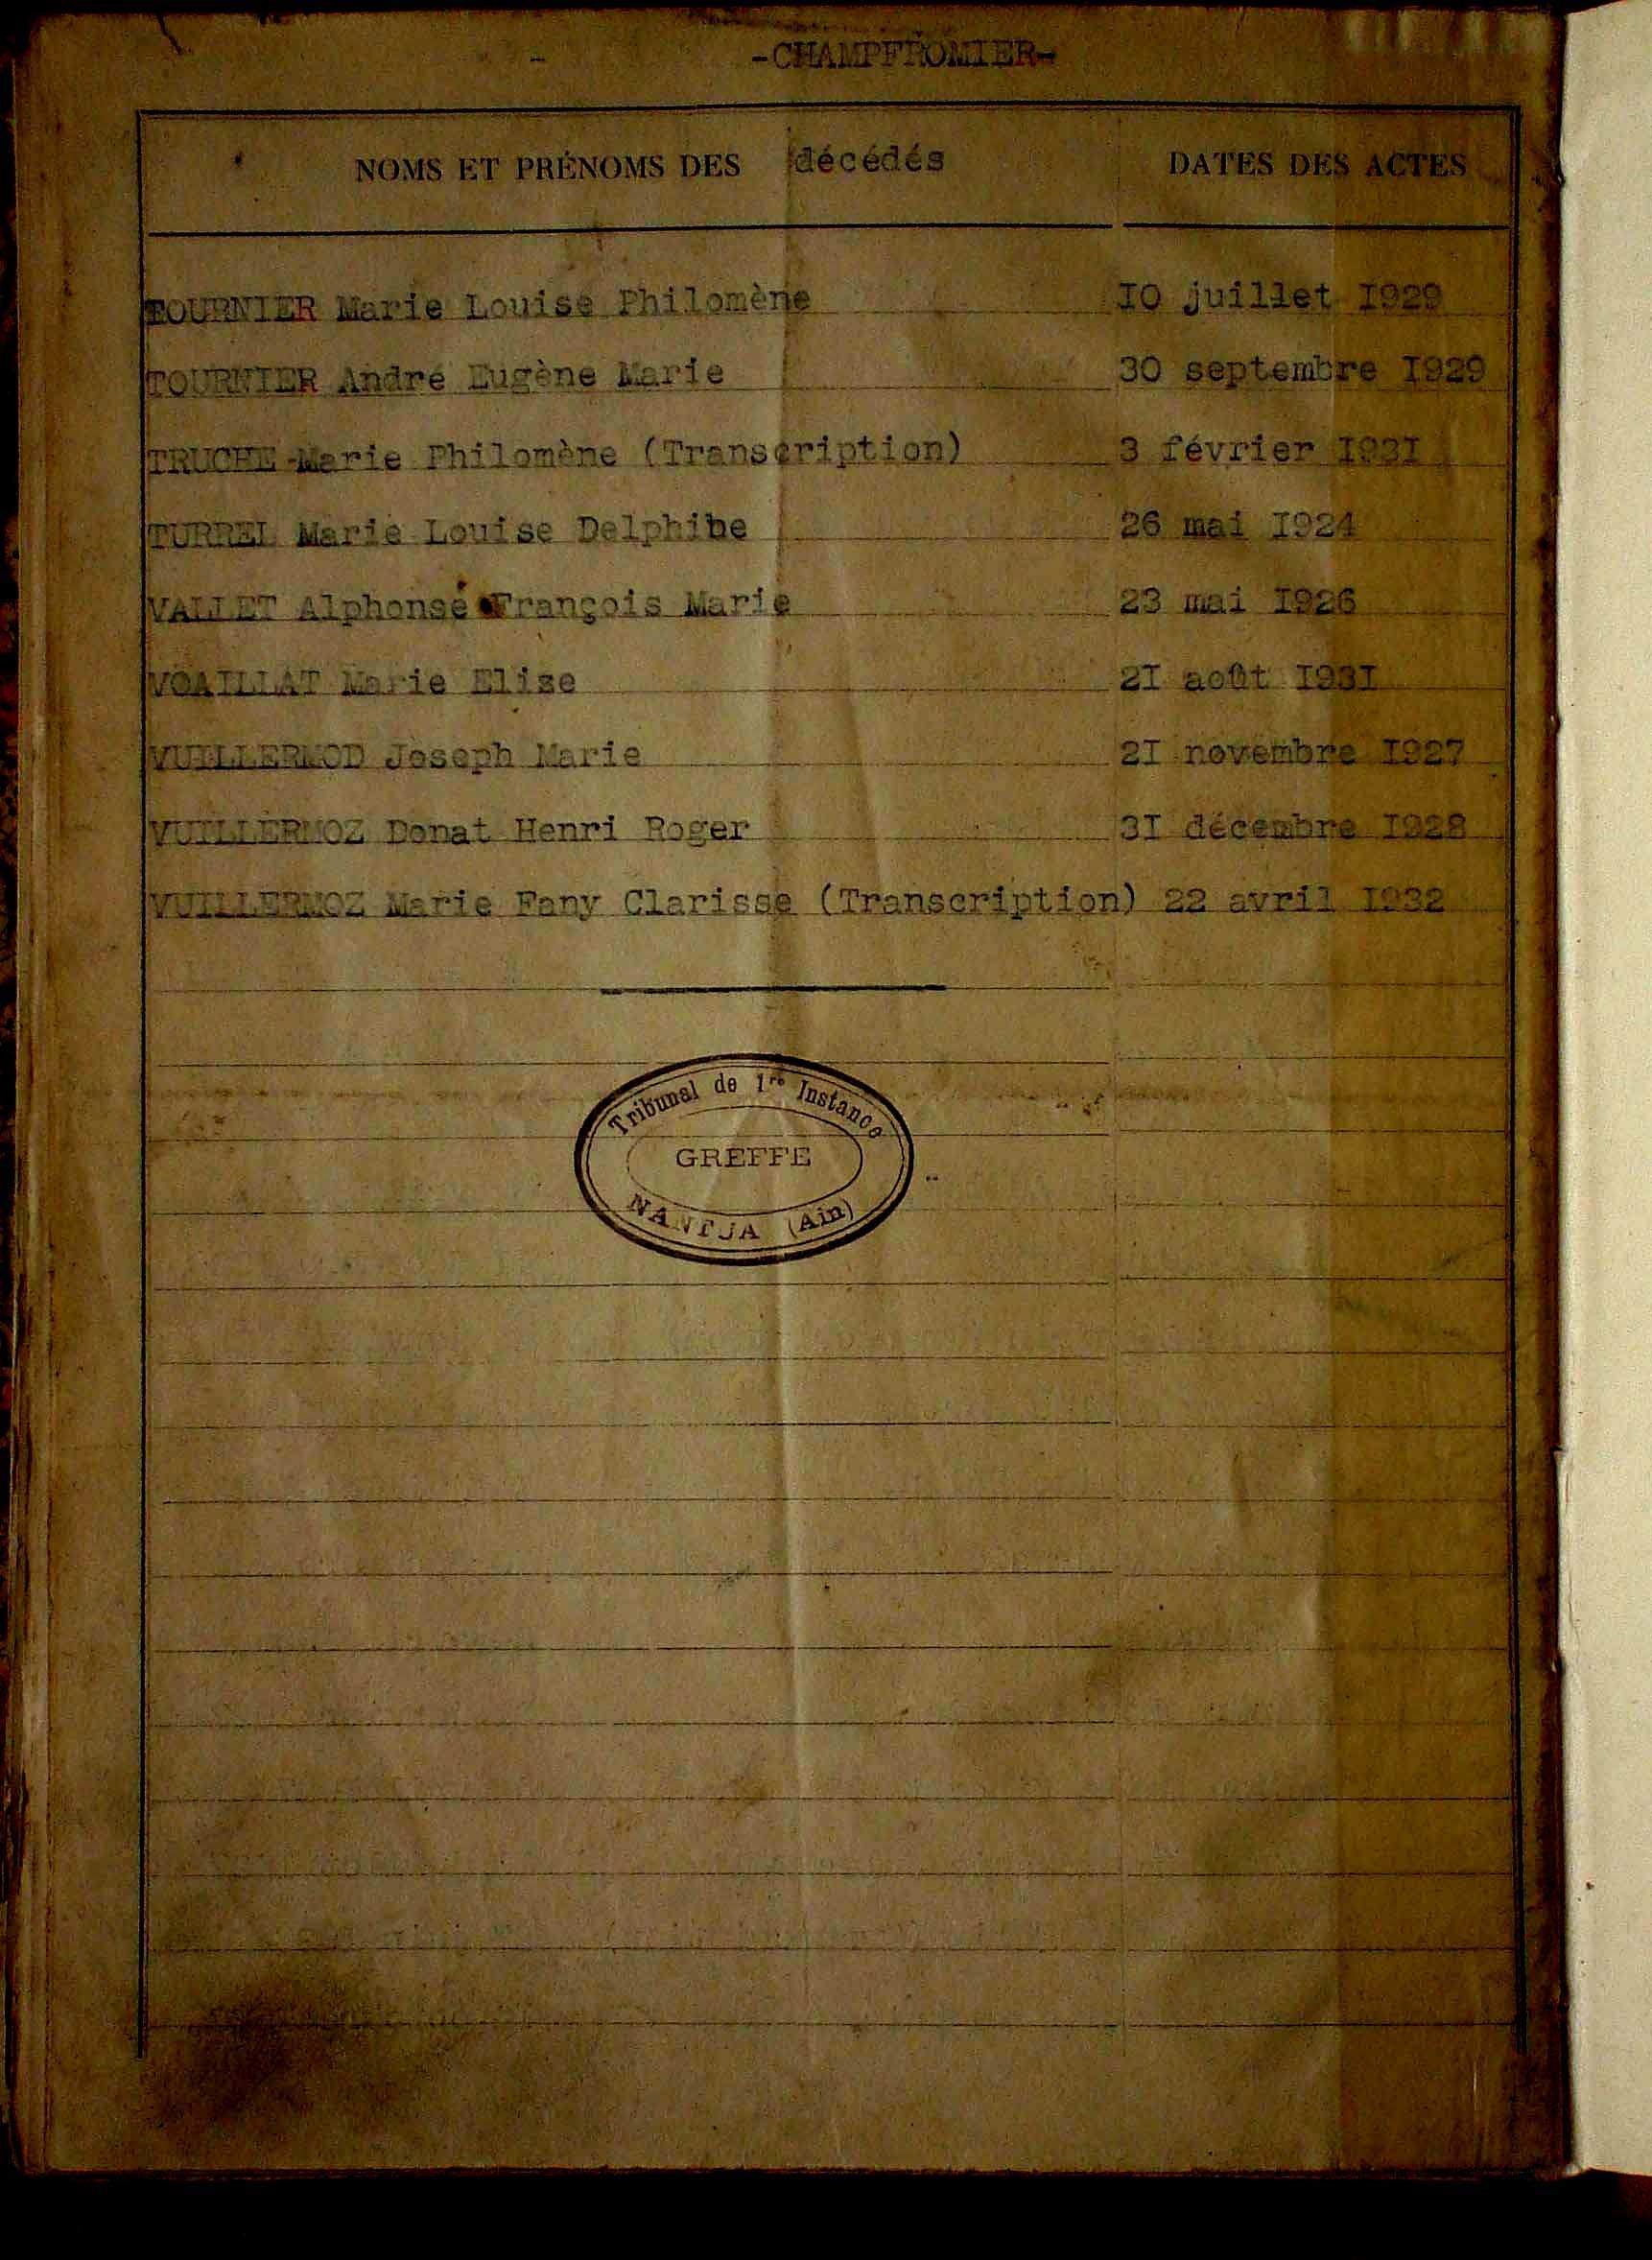 -CHAMPFROMIER-
NOMS ET PRÉNOMS DES décédés DATES DES ACTES
TOURNIER Marie Louise Philomène IO juillet I929
TOURNIER André Eugène Marie 30 septembre I929
TRUCHE Marie Philomène (Transcription) 3 février I93I
TURREL Marie Louise Delphine 26 mai I924
VALLET Alphonse François Marie 23 mai I926
VOAILLAT Marie Elise 2I août I93I
VUILLERMOD Joseph Marie 2I novembre I927
VUILLERMOZ Donat Henri Roger 3I décembre I928
VUILLERMOZ Marie Fany Clarisse (Transcription) 22 avril I932
Tribunal de 1re Instance
GREFFE
NANTUA (Ain)